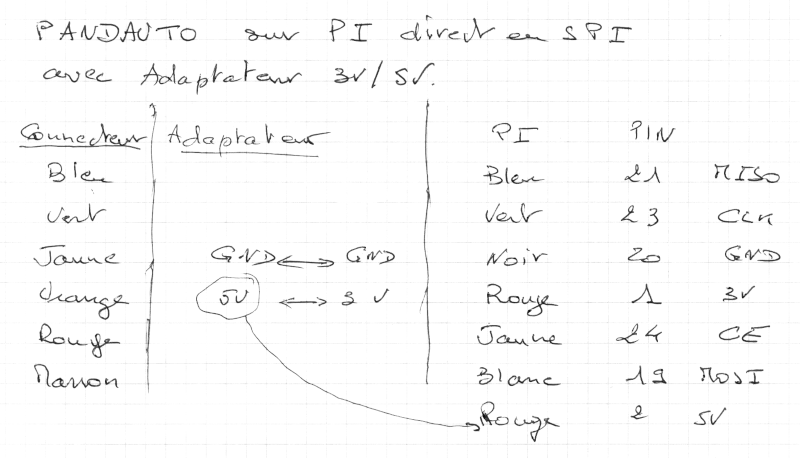 PANDAUTO sur PI direct en SPI
avec Adaptateur 3V/5V.
Connecteur Adaptateur PI PIN
Bleu Bleu 21 MISO
Vert Vert 23 CLK
Jaune GND ↔ GND Noir 20 GND
Orange 5V ↔ 3V Rouge 1 3V
Rouge Jaune 24 CE
Marron Blanc 19 MOSI
Rouge 2 5V